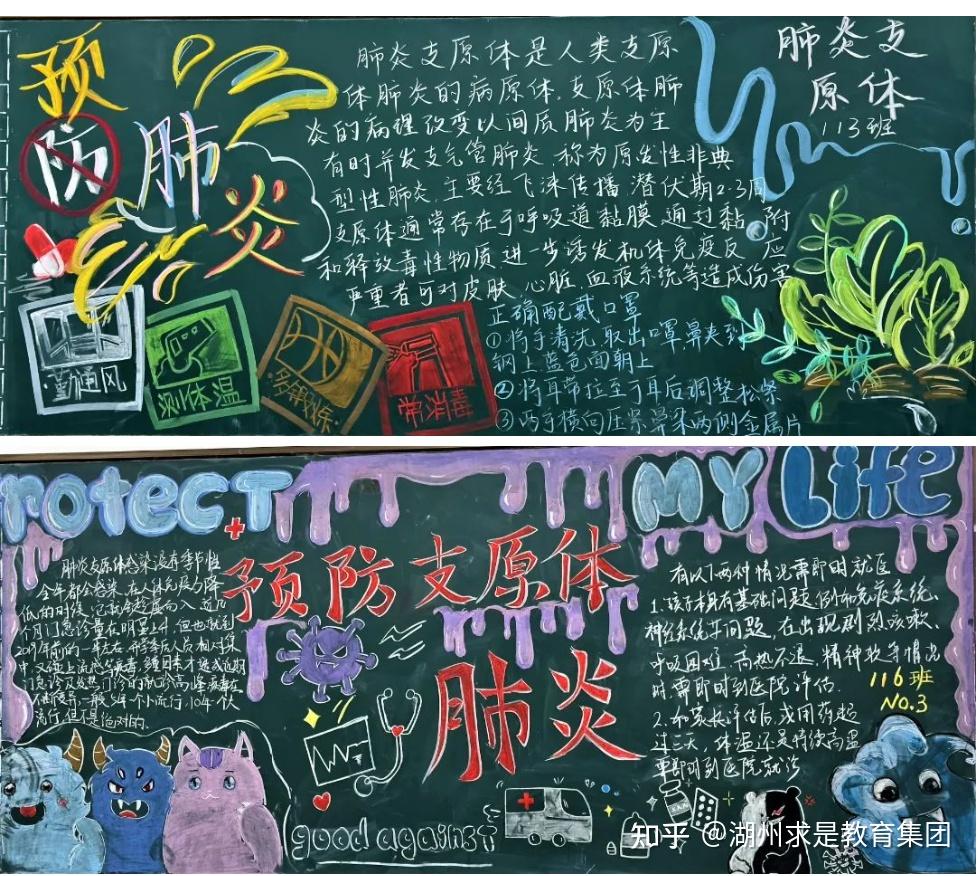 预
防肺
炎
肺炎支原体是人类支原
体肺炎的病原体.支原体肺
炎的病理改变以间质肺炎为主
有时并发支气管肺炎.称为原发性非典
型性肺炎.主要经飞沫传播.潜伏期2-3周
支原体通常存在于呼吸道黏膜.通过黏 附
和释放毒性物质.进一步诱发机体免疫反 应
严重者可对皮肤.心脏.血液系统等造成伤害
肺炎支
原体
113班
勤通风
测体温
多锻炼
常消毒
正确配戴口罩
①将手清洗 取出口罩鼻夹
钢上蓝色面朝上
②将耳带拉至于耳后调整松紧
③两手横向压紧鼻梁两侧金属片
rotecT
MY Life
预防支原体
肺炎
肺炎支原体感染没有季节性
全年都会感染.在人体免疫力降
低的时候,它就会趁虚而入.近几
个月门急诊量在明显上升,但也
2019年前的一年左右 开学后人员相对集
中,又碰上流感等病毒,
门急诊及发热门诊的就诊高峰
一般3-4年一个小流行.10年一个大
流行.但不是绝对的.
有以下两种情况需即时就医
1.孩子本身有基础问题.例如免疫系统、
神经系统等问题,在出现剧烈咳嗽、
呼吸困难,高热不退,精神 等情况
时需即时到医院评估.
2.如 家长评估后,或用药超
过三天,体温还是持续高温
要即时到医院就诊
116班
NO.3
good against
知乎 @湖州求是教育集团